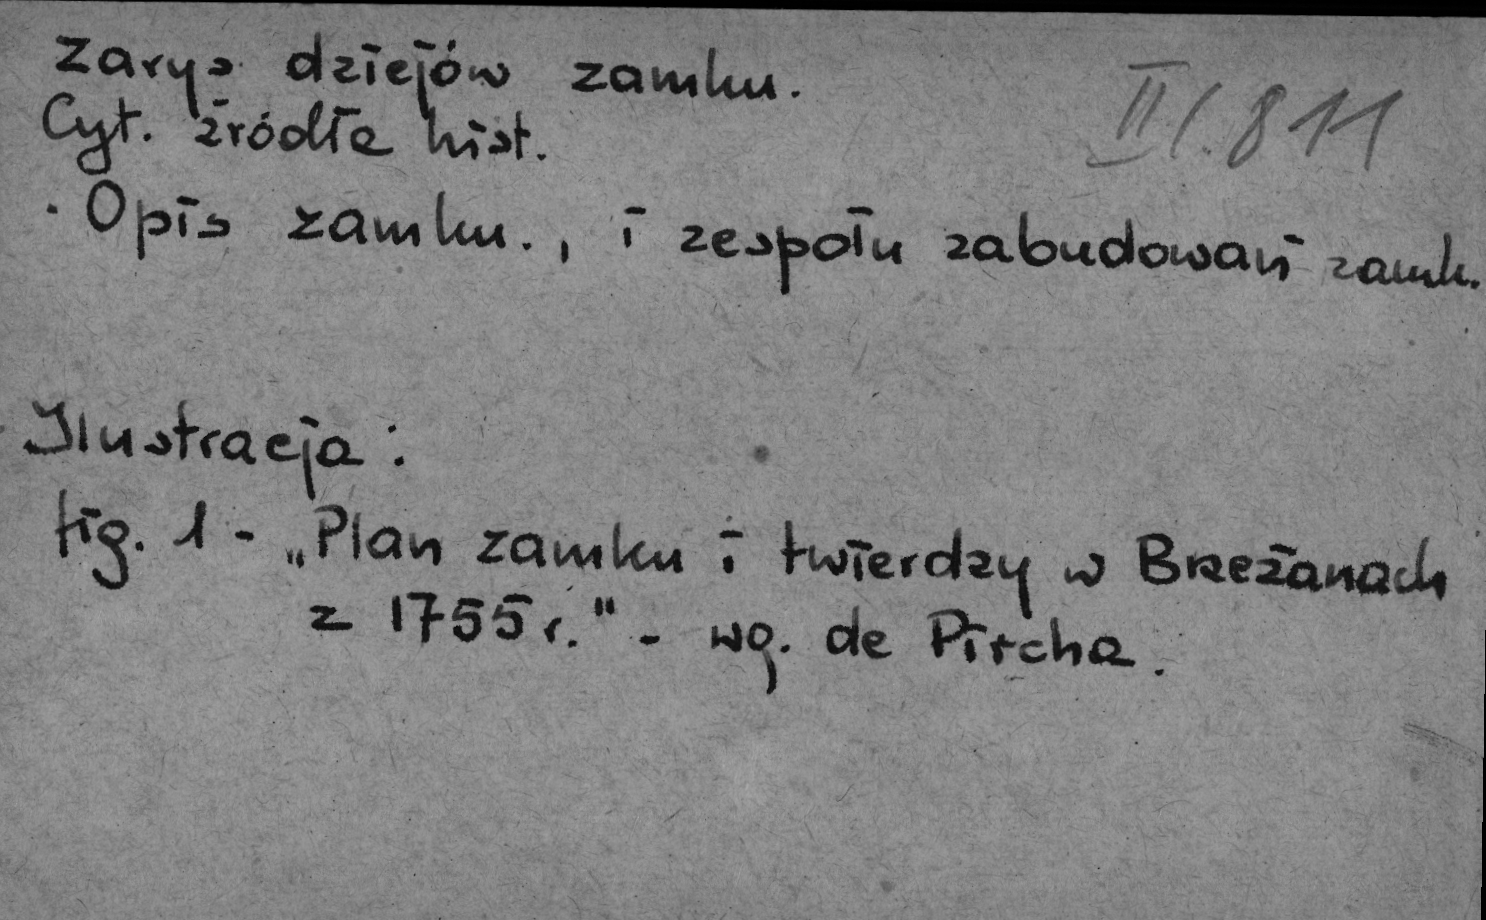 Zarys dziejów zamku.
II/.811
Cyt. źródła hist.
· Opis zamku., i zespołu zabudowań zamk.
Ilustracja:
fig. 1 - „Plan zamku i twierdzy w Brzeżanach
z 1755 r." - wg. de Pircha.